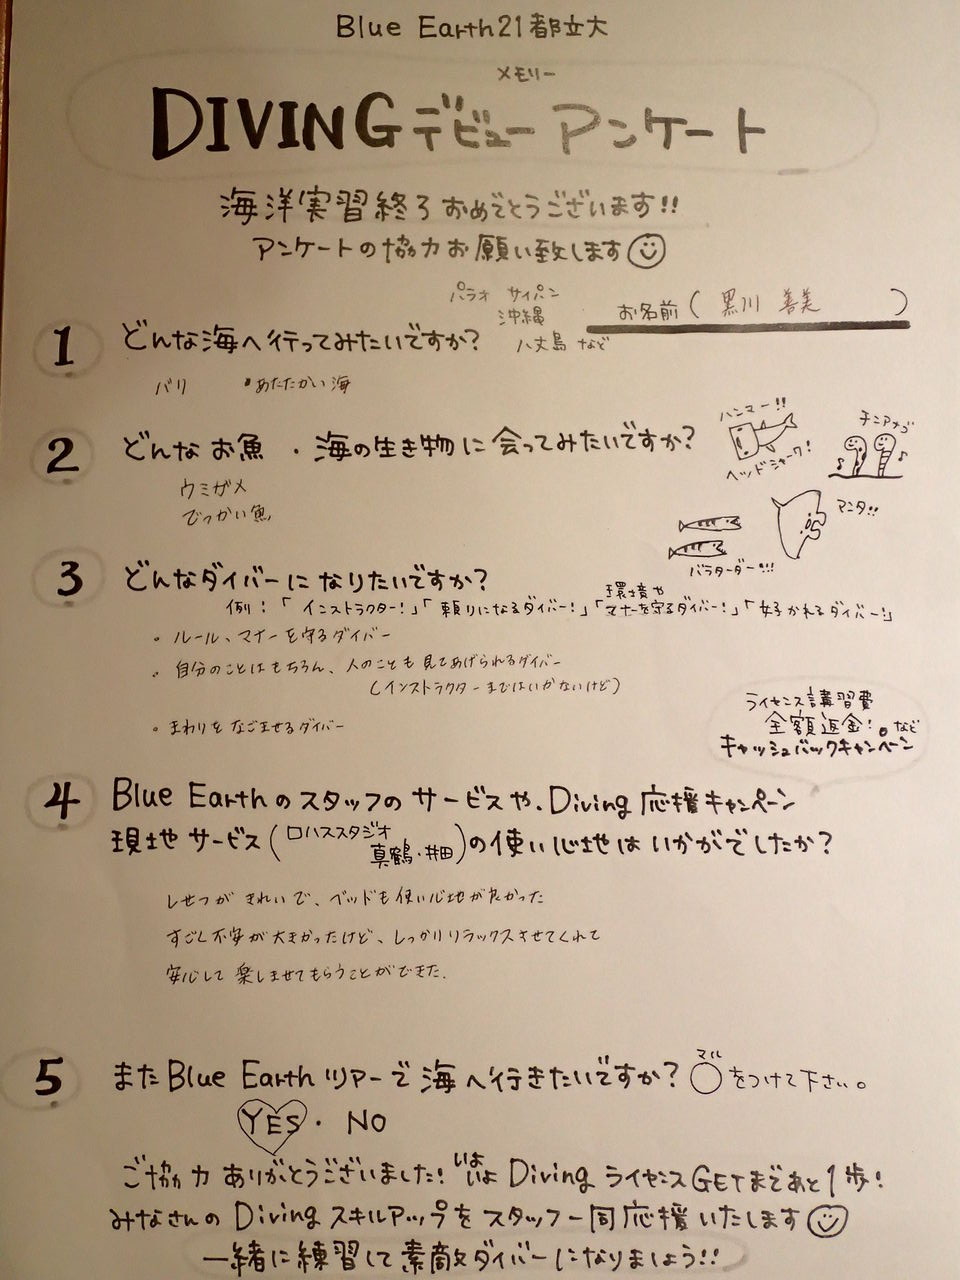 Blue Earth21都立大
メモリー
DIVINGデビューアンケート
海洋実習終了おめでとうございます!!
アンケートの協力お願い致します
パラオ サイパン
沖縄
八丈島 など
お名前 ( 黒川 善美 )
1 どんな海へ行ってみたいですか?
バリ ・あたたかい海
2 どんなお魚・海の生き物に会ってみたいですか?
ウミガメ
でっかい魚
ハンマー!!
ヘッドシャーク!
チンアナゴ
マンタ!!
バラクーダー!!!
3 どんなダイバーになりたいですか?
環境や
例:「インストラクター!」「頼りになるダイバー!」「マナーを守るダイバー!」「好かれるダイバー!」
・ルール、マナーを守るダイバー
・自分のことはもちろん、人のことも見てあげられるダイバー
(インストラクターまではいかないけど)
・まわりをなごませるダイバー
ライセンス講習費
全額返金!など
キャッシュバックキャンペーン
4 Blue Earthのスタッフのサービスや、Diving応援キャンペーン
現地サービス(ロハススタジオ
真鶴・井田)の使い心地はいかがでしたか?
しせつがきれいで、ベッドも使い心地が良かった
すごく不安が大きかったけど、しっかりリラックスさせてくれて
安心して楽しませてもらうことができた.
マル
5 またBlue Earthツアーで海へ行きたいですか?○をつけて下さい。
YES・NO
ご協力ありがとうございました!いよいよDivingライセンスGETまであと1歩!
みなさんのDivingスキルアップをスタッフ一同応援いたします
一緒に練習して素敵ダイバーになりましょう!!